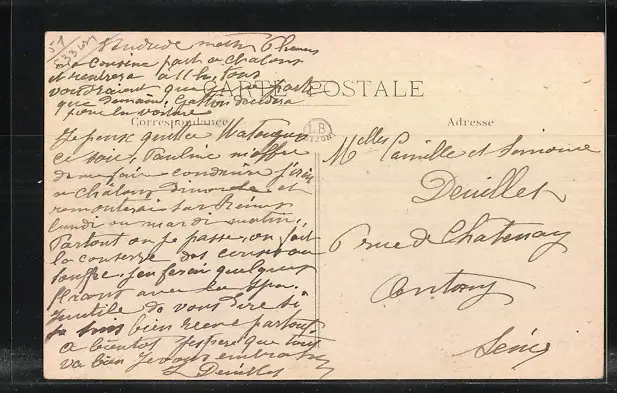 51
Vendredi matin 6 heures
La cousine part a Chalons
et rentrera a 11 h, tous
voudraient que je ne parte
que demain, Gaston decidera
pour la voiture
CARTE POSTALE
Correspondance
LB
DIJON
Adresse
Je pense quitter Matougues
ce soir, Pauline m'offre
de me faire conduire j'irai
a Châlons dimanche et
remonterais sur Reims
lundi ou mardi matin,
Partout ou je passe, on fait
la conserve des
en ferai quelques
avec la
Inutile de vous dire si
je suis bien recue partout
a bientot j'espere que tout
va bien Je vous embrasse
L Deuillet
Melles Camille et Simoine
Deuillet
6 rue de Chatenay
Antony
Seine